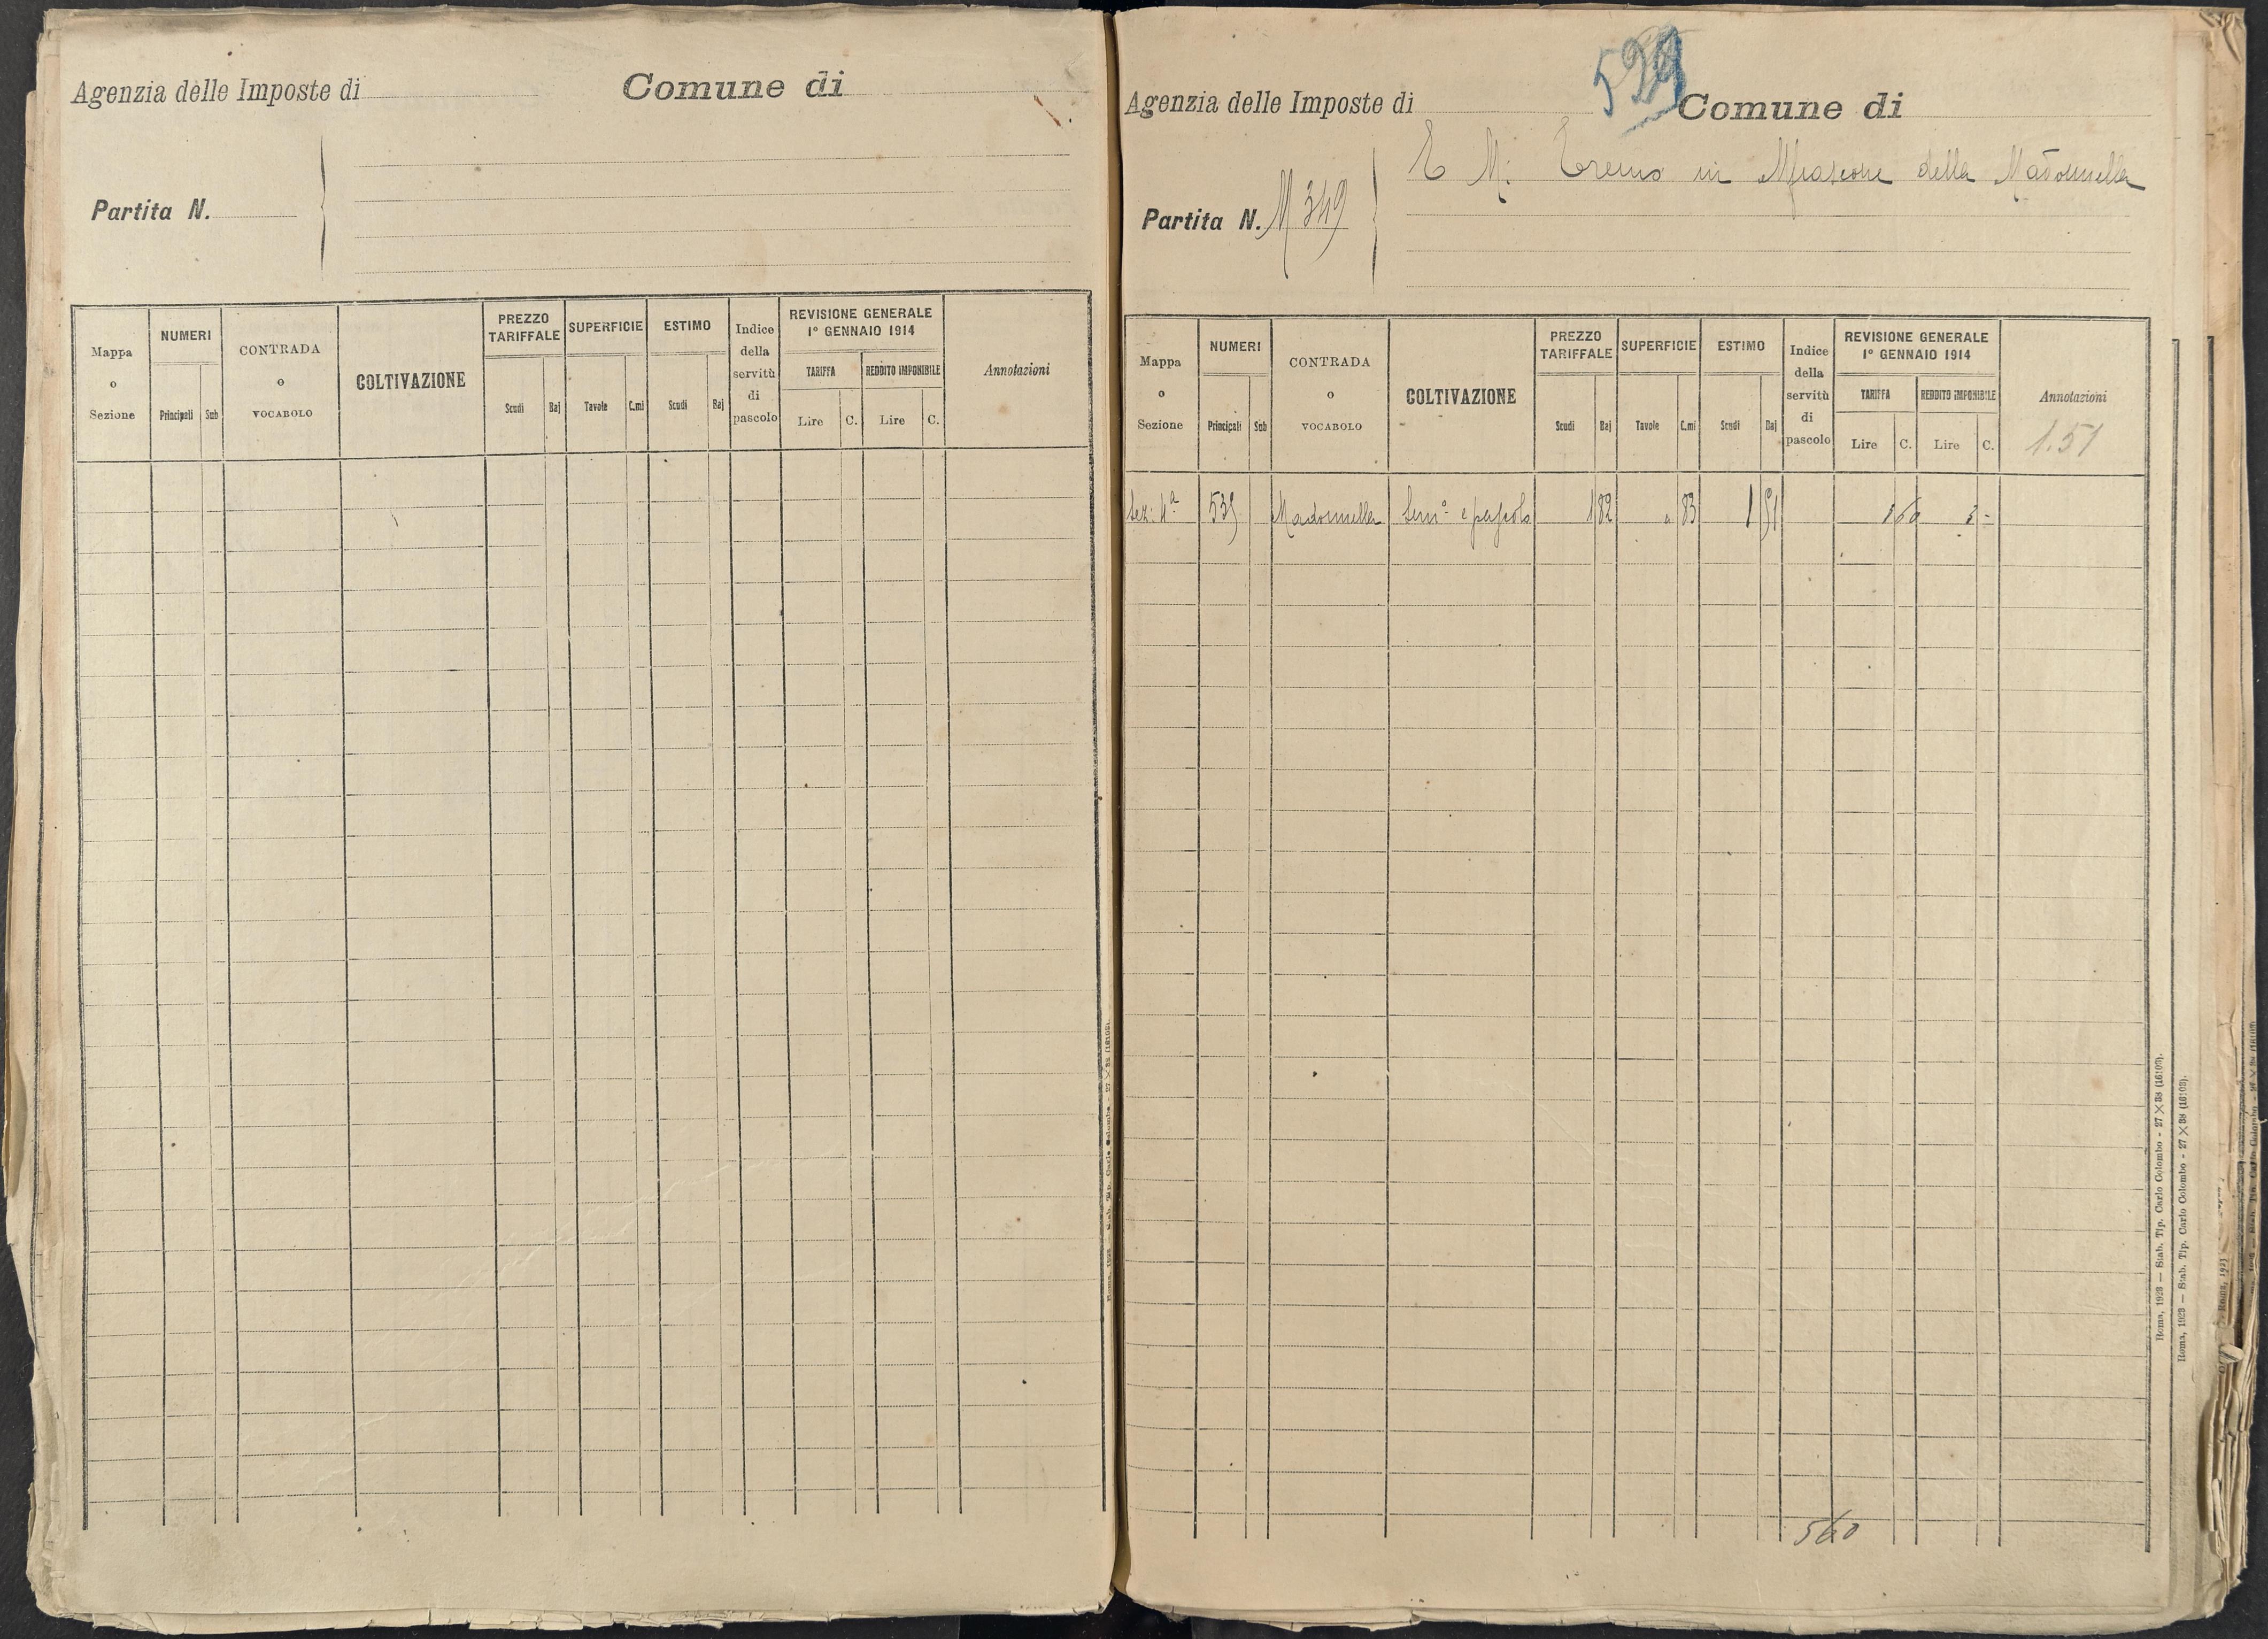 Agenzia delle Imposte di
Comune di
Partita N.
Mappa o Sezione
NUMERI
Principali
Sub
CONTRADA o VOCABOLO
COLTIVAZIONE
PREZZO TARIFFALE
Scudi
Baj
SUPERFICIE
Tavole
C.mi
ESTIMO
Scudi
Baj
Indice della servitù di pascolo
REVISIONE GENERALE
1° GENNAIO 1914
TARIFFA
Lire
C.
REDDITO IMPONIBILE
Lire
C.
Annotazioni
Agenzia delle Imposte di
Comune di
in della Madonnella
Partita N. M 349
Mappa o Sezione
NUMERI
Principali
Sub
CONTRADA o VOCABOLO
COLTIVAZIONE
PREZZO TARIFFALE
Scudi
Baj
SUPERFICIE
Tavole
C.mi
ESTIMO
Scudi
Baj
Indice della servitù di pascolo
REVISIONE GENERALE
1° GENNAIO 1914
TARIFFA
Lire
C.
REDDITO IMPONIBILE
Lire
C.
Annotazioni
1.51
Sez: 4ª 539 Madonnella Sem° e pascolo 1 82 " 83 1 51 1 60
560
Roma, 1923 — Stab. Tip. Carlo Colombo - 27 × 38 (16103).
Roma, 1923 — Stab. Tip. Carlo Colombo - 27 × 38 (16103).